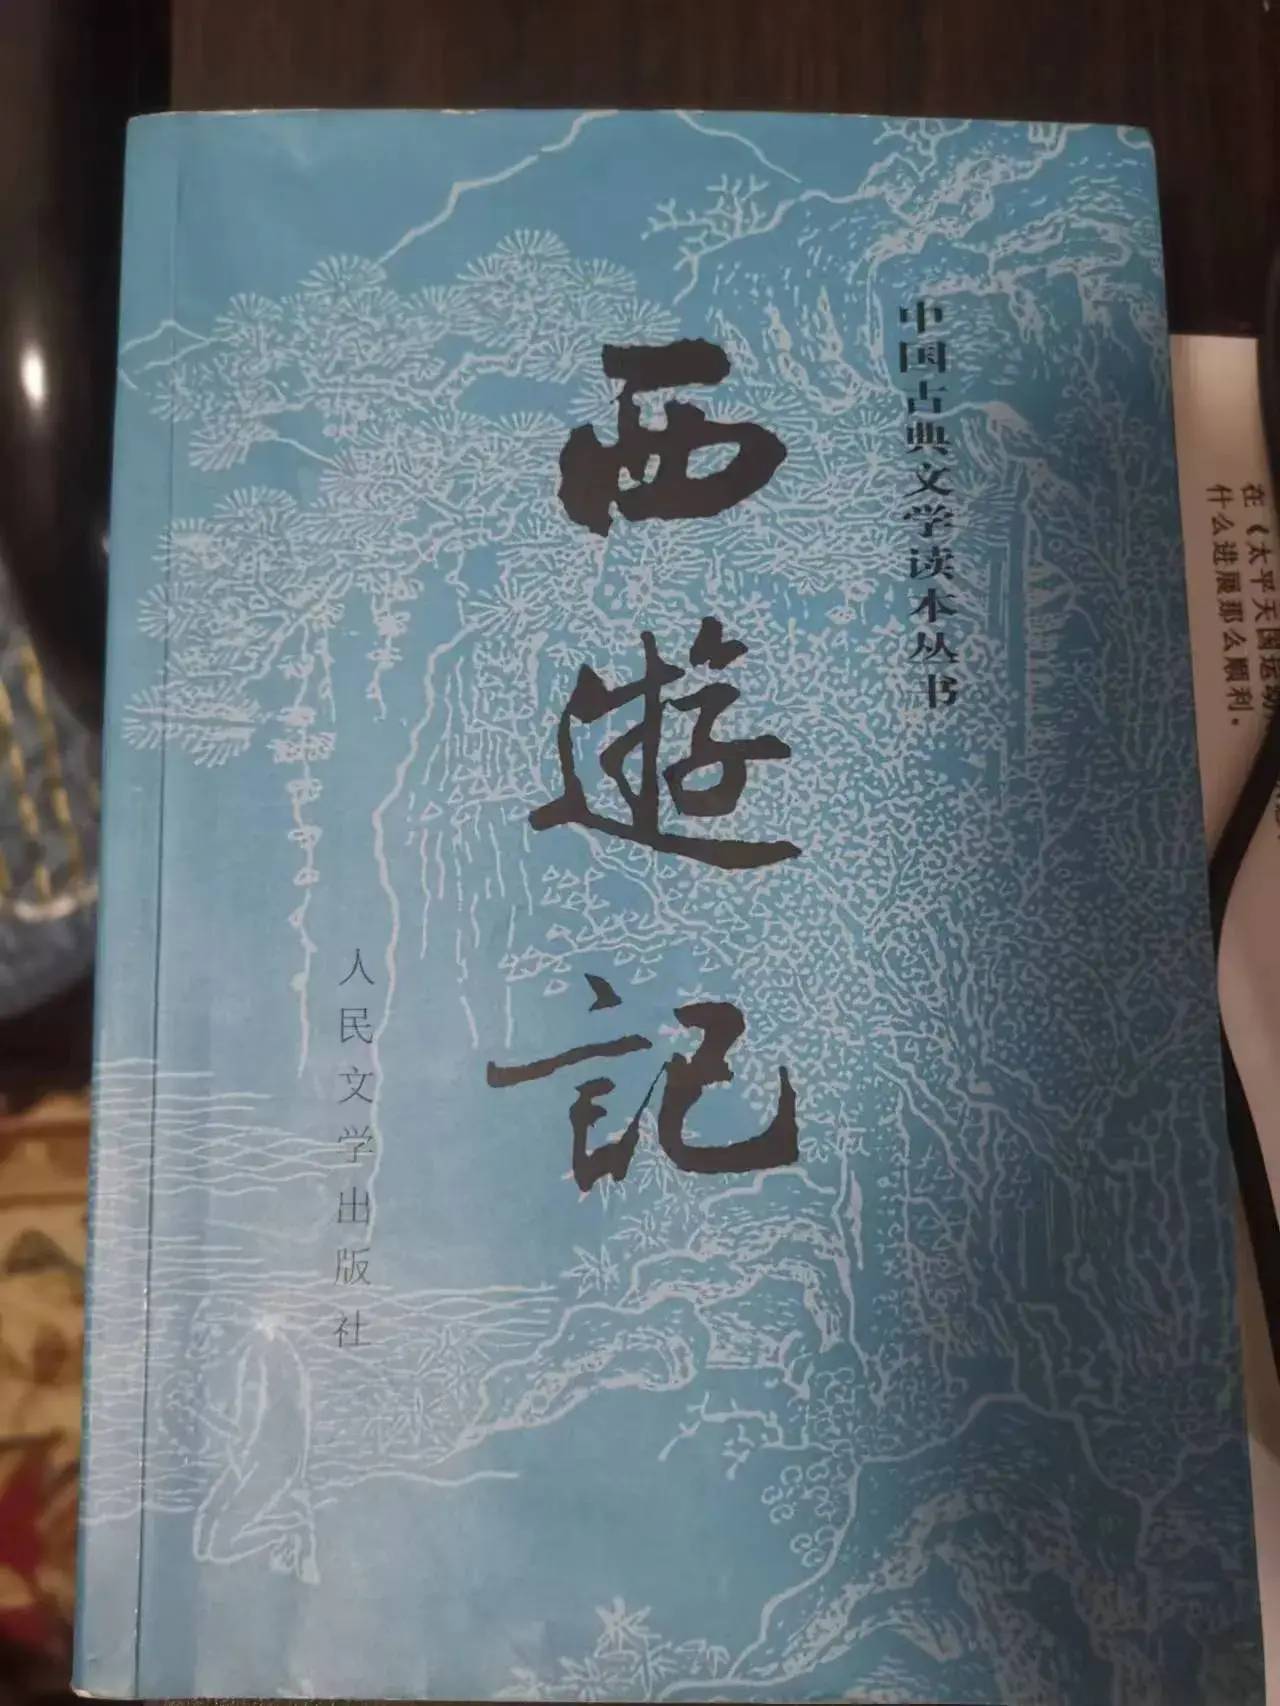 中国古典文学读本丛书
西遊記
人民文学出版社
在《太平天国运动
什么进展那么顺利。